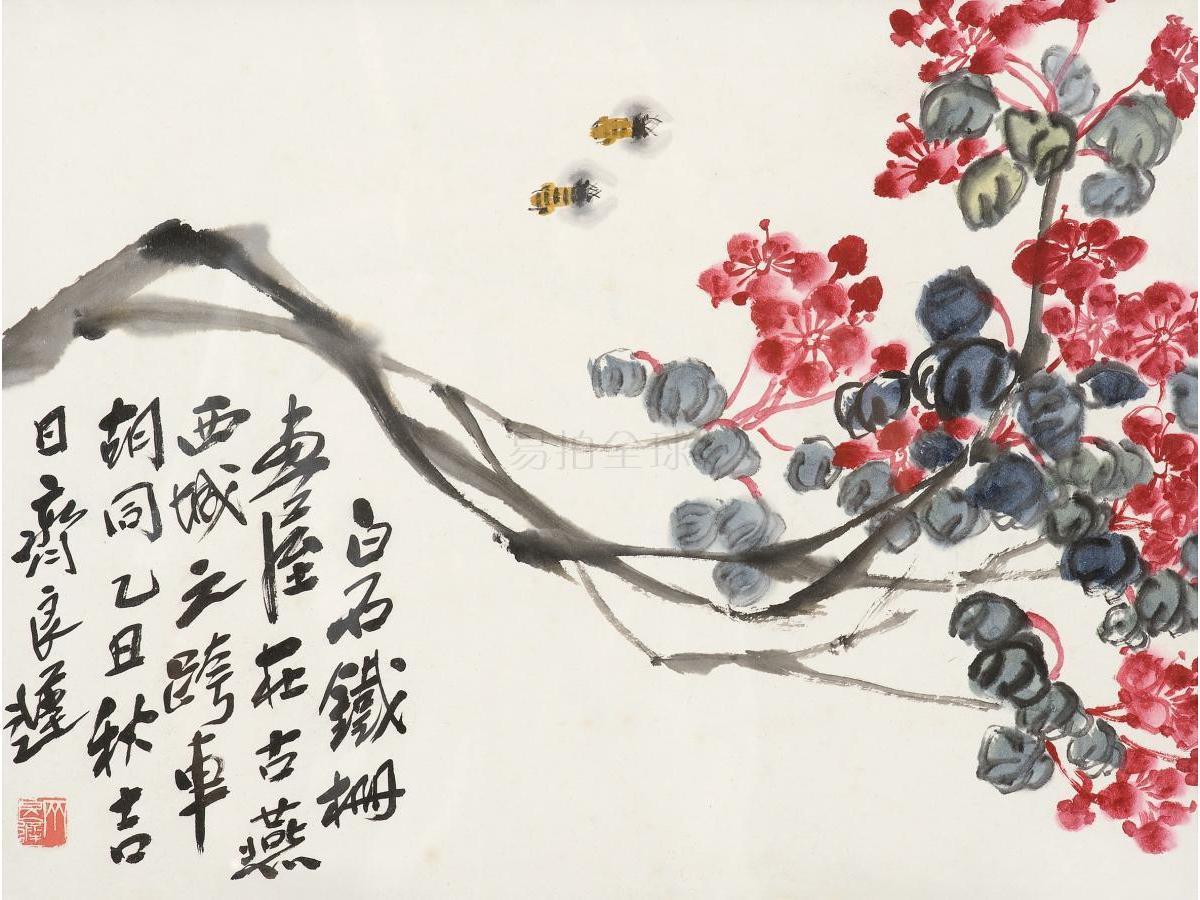 白石鐵柵
畫屋在古燕
西城之跨車
胡同乙丑秋吉
日齊良遲
易拍全球